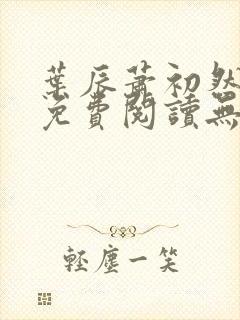 葉辰蕭初然
免費閱讀無
輕塵一笑